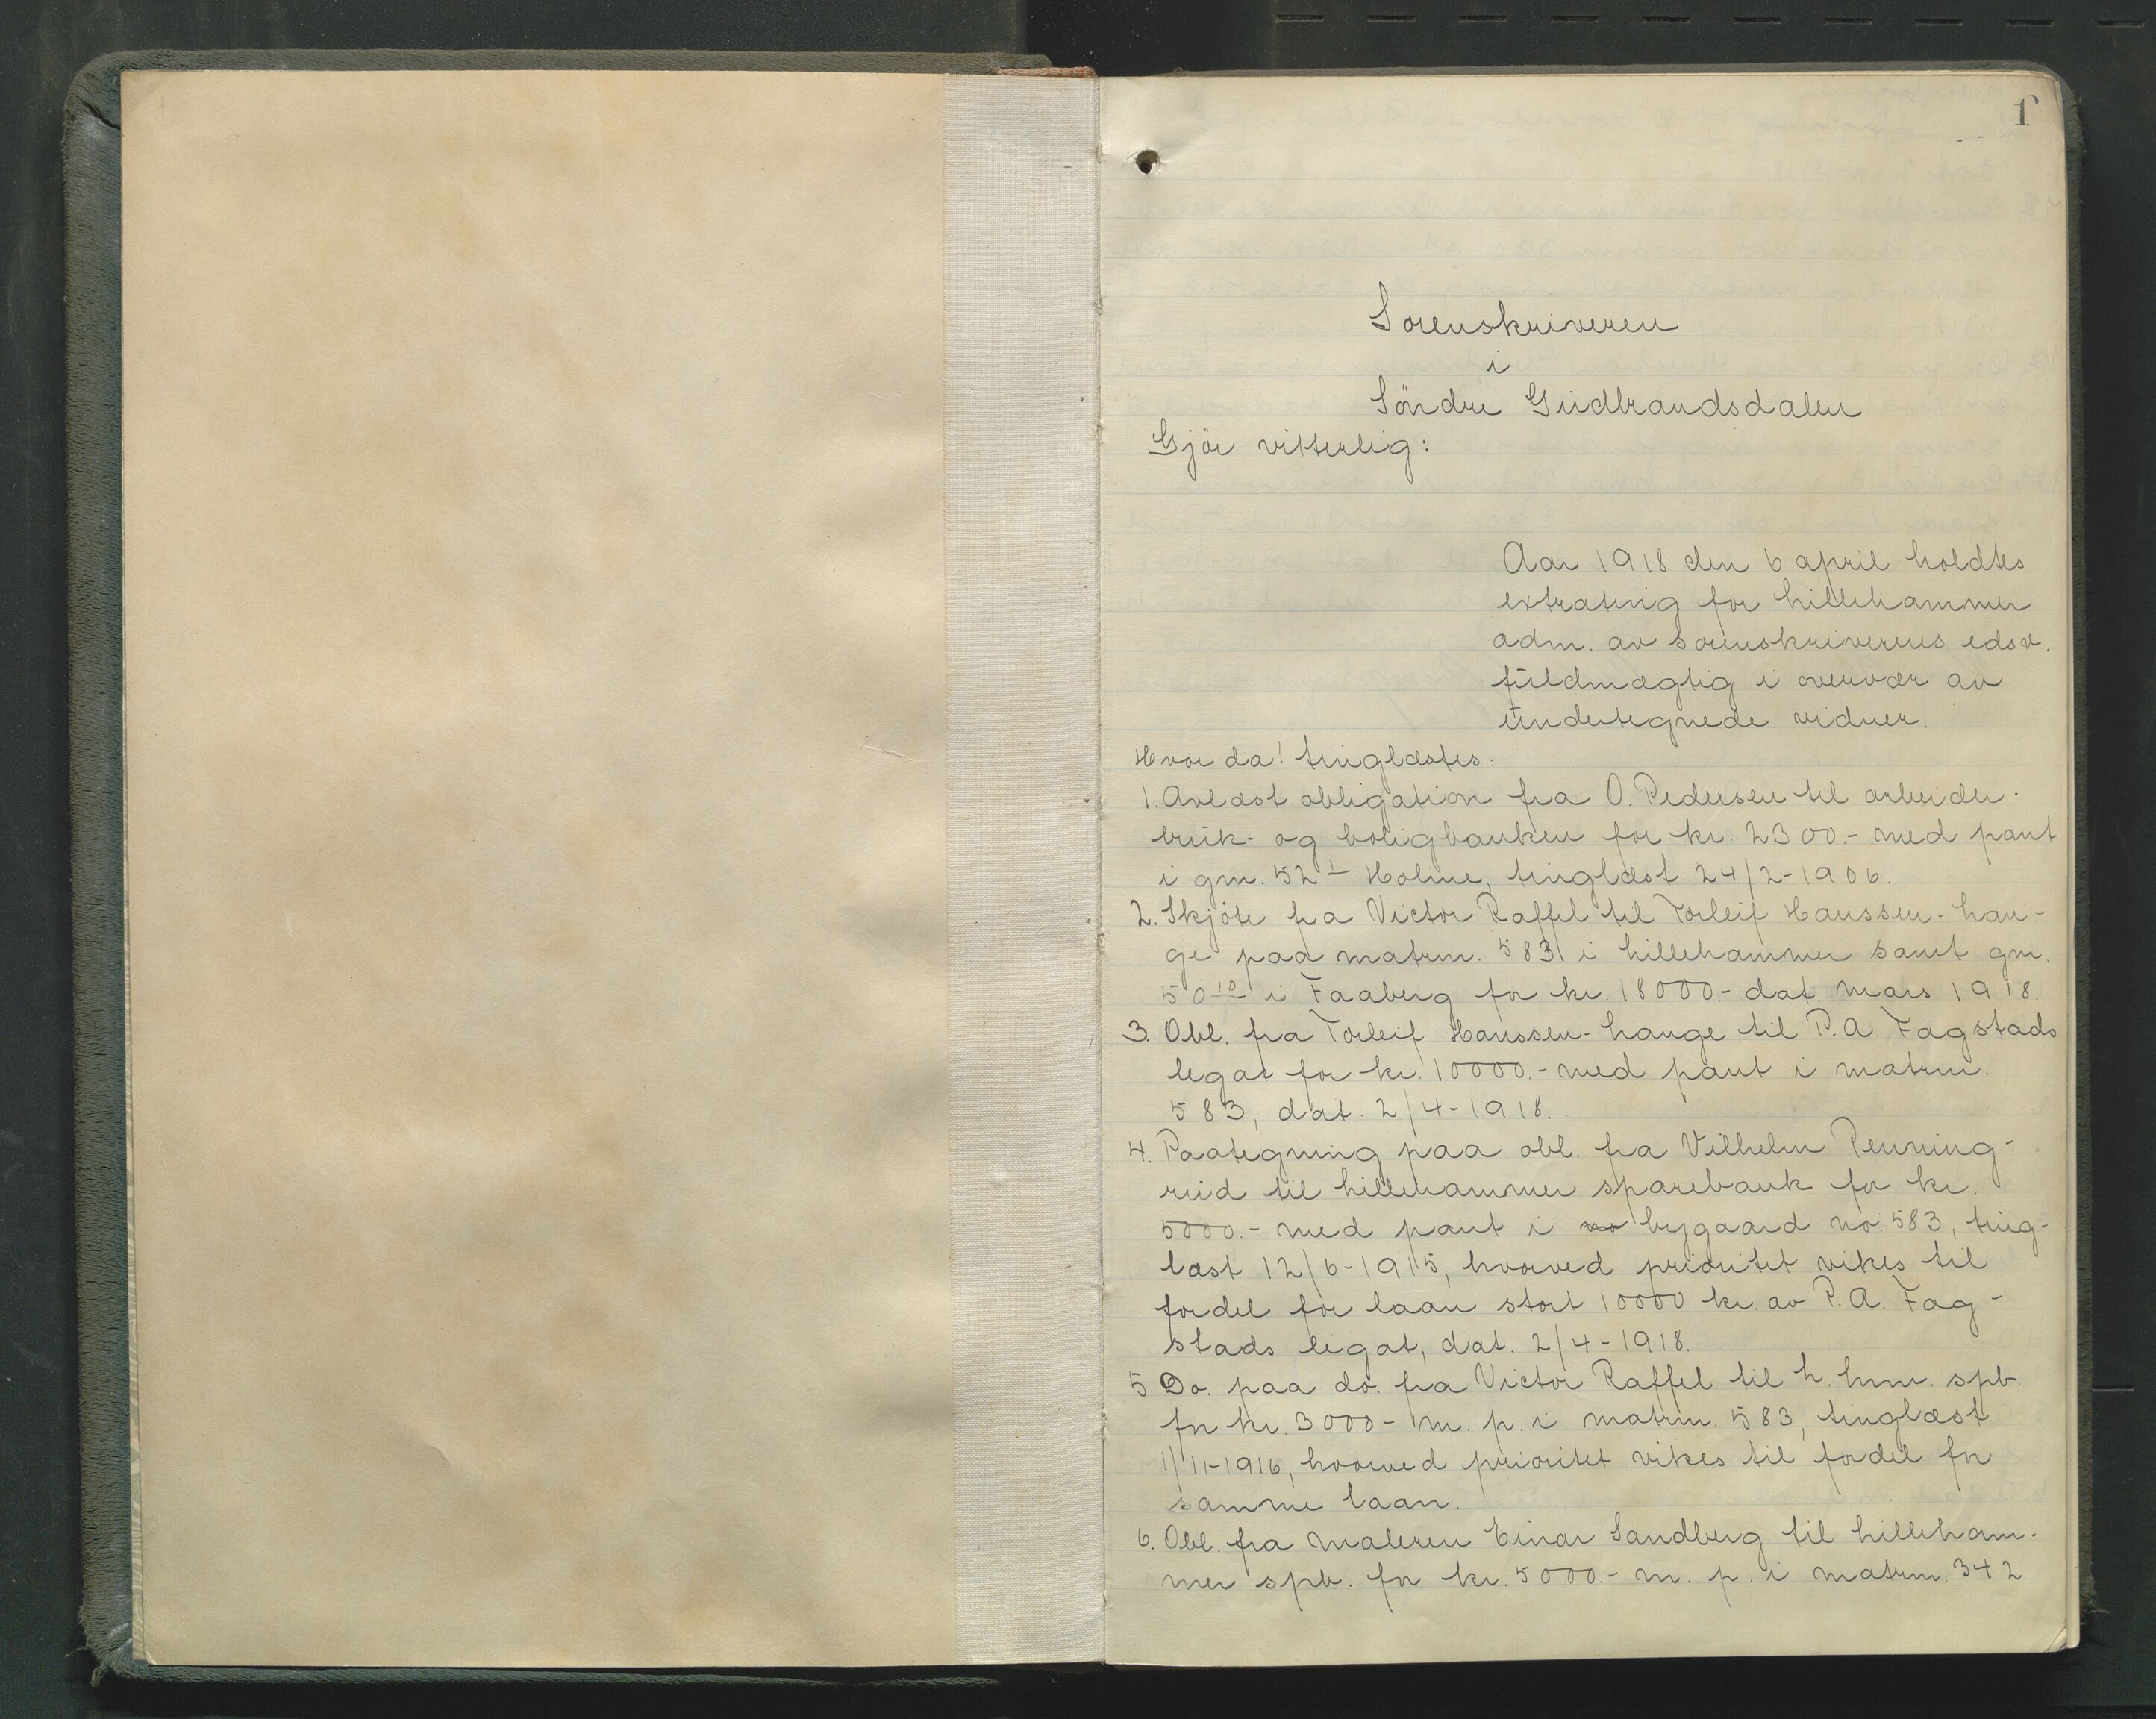 1
Sorenskriveren
i
Söndre Gudbrandsdalen
Gjör vitterlig:
Aar 1918 den 6 april holdtes
extrating for Lillehammer
adm. av sorenskriverens edsv.
fuldmægtig i overvær av
undertegnede vidner.
Hvor da! tinglæstes:
1. Avlæst obligation fra O. Pedersen til arbeider-
bruk- og boligbanken for kr. 2300.- med pant
i gm. 52 1 Holme, tinglæst 24/2-1906.
2. Skjöte fra Victor Raffel til Torleif Hanssen-Hau-
ge paa matrm. 583 i Lillehammer samt gm.
50 10 i Faaberg for kr. 18000.- dat. mars 1918.
3. Obl. fra Torleif Hanssen-Hauge til P.A. Fagstads
legat for kr. 10000.- med pant i matrm.
583, dat. 2/4-1918.
4. Paategning paa obl. fra Vilhelm Penning-
rud til Lillehammer sparebank for kr.
5000.- med pant i bygaard no. 583, ting-
læst 12/6-1915, hvorved prioritet vikes til
fordel for laan stort 10000 kr. av P.A. Fag-
stads legat, dat. 2/4-1918.
5. Do. paa do. fra Victor Raffel til L.hmr. spb.
for kr. 3000- m. p. i matrm. 583, tinglæst
1/11-1916, hvorved prioritet vikes til fordel for
samme laan.
6. Obl. fra maleren Einar Sandberg til Lilleham-
mer spb. for kr. 5000.- m. p. i matrm. 342